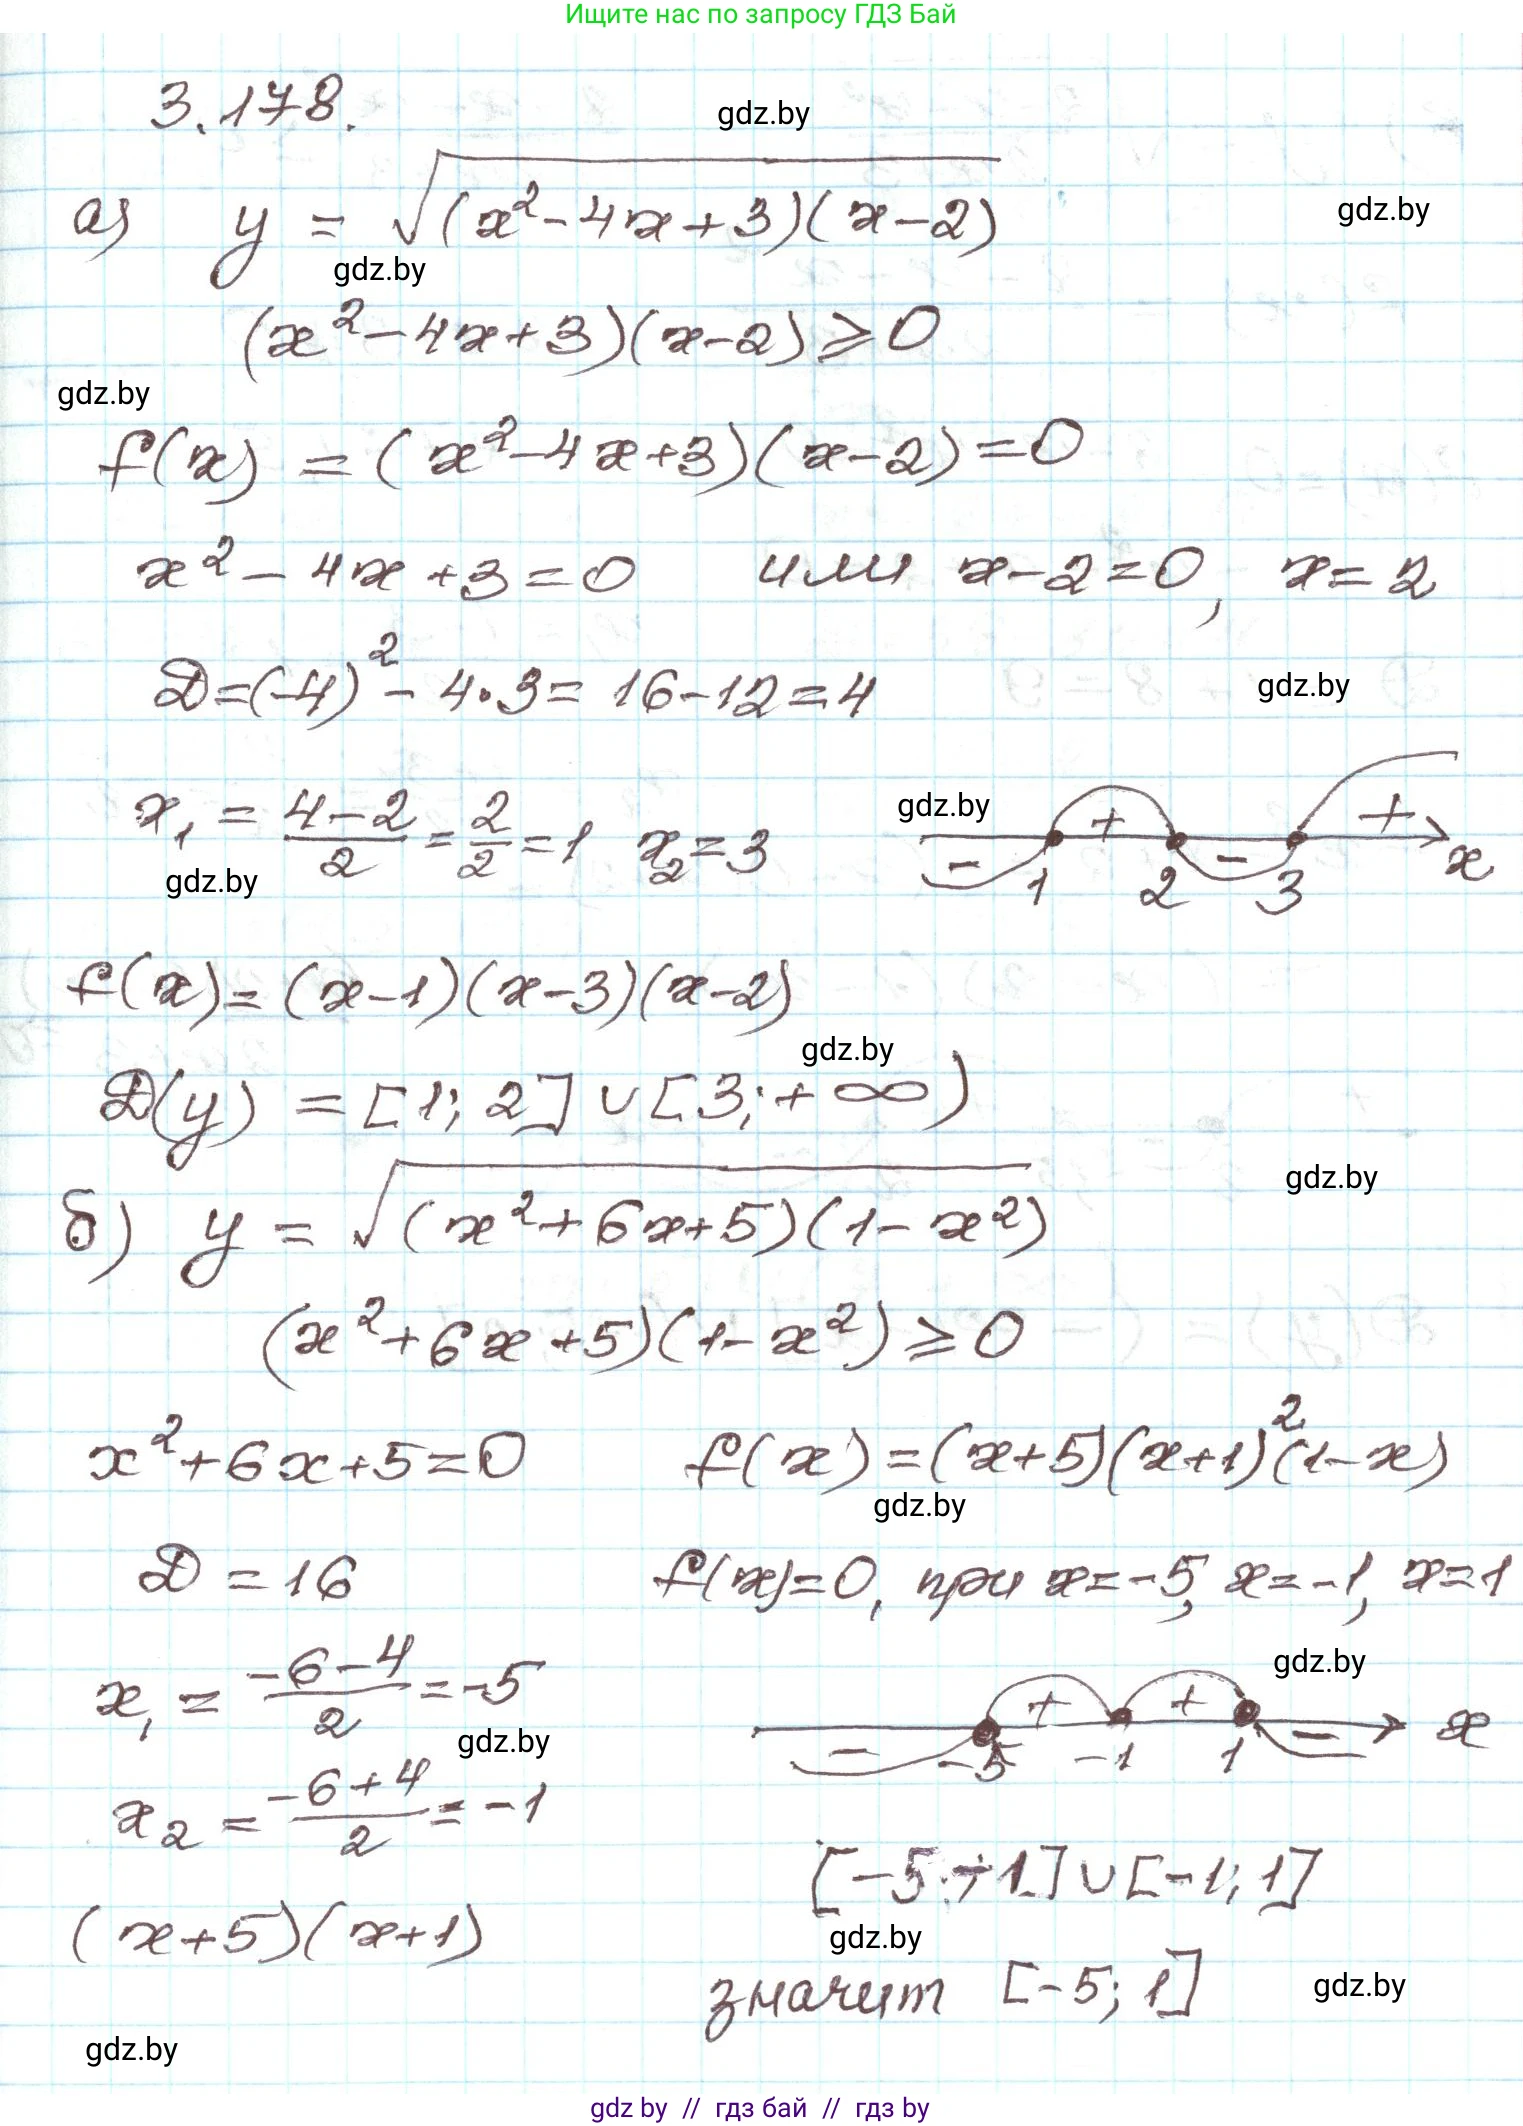 Ищите нас по запросу ГДЗ Бай
3.178.
gdz.by
а) y = √(x² - 4x + 3)(x - 2)
gdz.by
gdz.by
(x² - 4x + 3)(x - 2) ⩾ 0
gdz.by
f(x) = (x² - 4x + 3)(x - 2) = 0
x² - 4x + 3 = 0 или x - 2 = 0, x = 2
D = (-4)² - 4·3 = 16 - 12 = 4
gdz.by
x₁ = (4 - 2)/2 = 2/2 = 1 x₂ = 3
gdz.by
- + - + x
1 2 3
gdz.by
f(x) = (x - 1)(x - 3)(x - 2)
gdz.by
D(y) = [1; 2] ∪ [3; +∞)
gdz.by
б) y = √(x² + 6x + 5)(1 - x²)
(x² + 6x + 5)(1 - x²) ⩾ 0
x² + 6x + 5 = 0 f(x) = (x + 5)(x + 1)²(1 - x)
gdz.by
D = 16 f(x) = 0, при x = -5, x = -1, x = 1
x₁ = (-6 - 4)/2 = -5
gdz.by
gdz.by
- + + - x
-5 -1 1
x₂ = (-6 + 4)/2 = -1
[-5; -1] ∪ [-1; 1]
(x + 5)(x + 1)
gdz.by
значит [-5; 1]
gdz.by
gdz.by
gdz by // гдз бай // гдз by